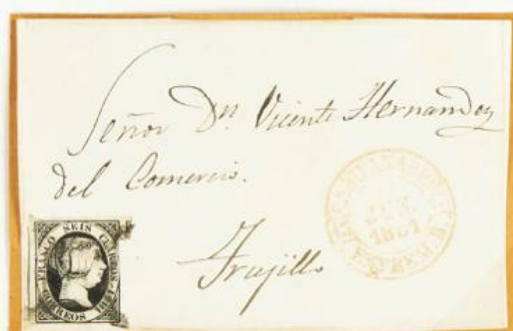 Señor Dn Vicente Hernandez
del Comercio.
Trujillo
FRANCO SEIS CUARTOS
CORREOS 1851
JUN.
1851
ESTREM. B.